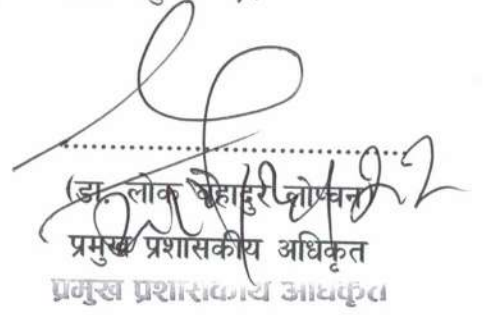 (डा. लोक बहादुर लोप्चन)
प्रमुख प्रशासकीय अधिकृत
प्रमुख प्रशासकीय अधिकृत